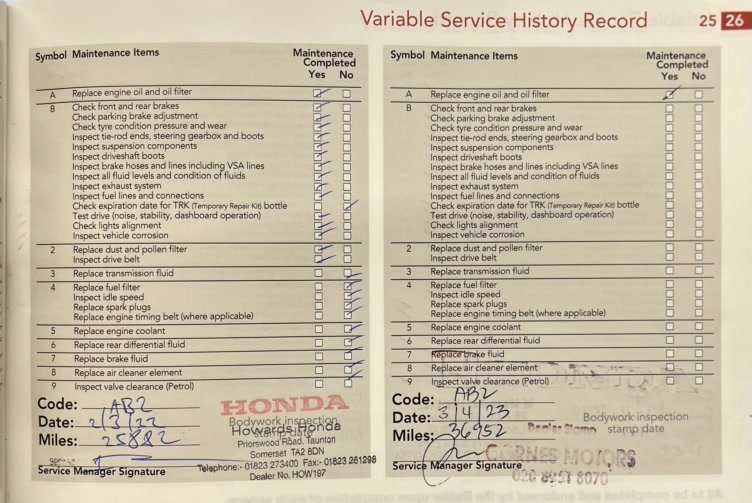 Variable Service History Record 25 26
Symbol Maintenance Items Maintenance Completed Yes No
A Replace engine oil and oil filter
B Check front and rear brakes
Check parking brake adjustment
Check tyre condition pressure and wear
Inspect tie-rod ends, steering gearbox and boots
Inspect suspension components
Inspect driveshaft boots
Inspect brake hoses and lines including VSA lines
Inspect all fluid levels and condition of fluids
Inspect exhaust system
Inspect fuel lines and connections
Check expiration date for TRK (Temporary Repair Kit) bottle
Test drive (noise, stability, dashboard operation)
Check lights alignment
Inspect vehicle corrosion
2 Replace dust and pollen filter
Inspect drive belt
3 Replace transmission fluid
4 Replace fuel filter
Inspect idle speed
Replace spark plugs
Replace engine timing belt (where applicable)
5 Replace engine coolant
6 Replace rear differential fluid
7 Replace brake fluid
8 Replace air cleaner element
9 Inspect valve clearance (Petrol)
Code: AB2
Date: 2/3/22
Miles: 25882
Service Manager Signature
HONDA
Bodywork inspection
stamp date
Howards Honda
Priorswood Road, Taunton
Somerset TA2 8DN
Telephone:- 01823 273400 Fax:- 01823 261298
Dealer No. HOW197
Symbol Maintenance Items Maintenance Completed Yes No
A Replace engine oil and oil filter
B Check front and rear brakes
Check parking brake adjustment
Check tyre condition pressure and wear
Inspect tie-rod ends, steering gearbox and boots
Inspect suspension components
Inspect driveshaft boots
Inspect brake hoses and lines including VSA lines
Inspect all fluid levels and condition of fluids
Inspect exhaust system
Inspect fuel lines and connections
Check expiration date for TRK (Temporary Repair Kit) bottle
Test drive (noise, stability, dashboard operation)
Check lights alignment
Inspect vehicle corrosion
2 Replace dust and pollen filter
Inspect drive belt
3 Replace transmission fluid
4 Replace fuel filter
Inspect idle speed
Replace spark plugs
Replace engine timing belt (where applicable)
5 Replace engine coolant
6 Replace rear differential fluid
7 Replace brake fluid
8 Replace air cleaner element
9 Inspect valve clearance (Petrol)
Code: AB2
Date: 3/4/23
Miles: 36952
Service Manager Signature
Bodywork inspection
Dealer Stamp stamp date
CORNES MOTORS
8070